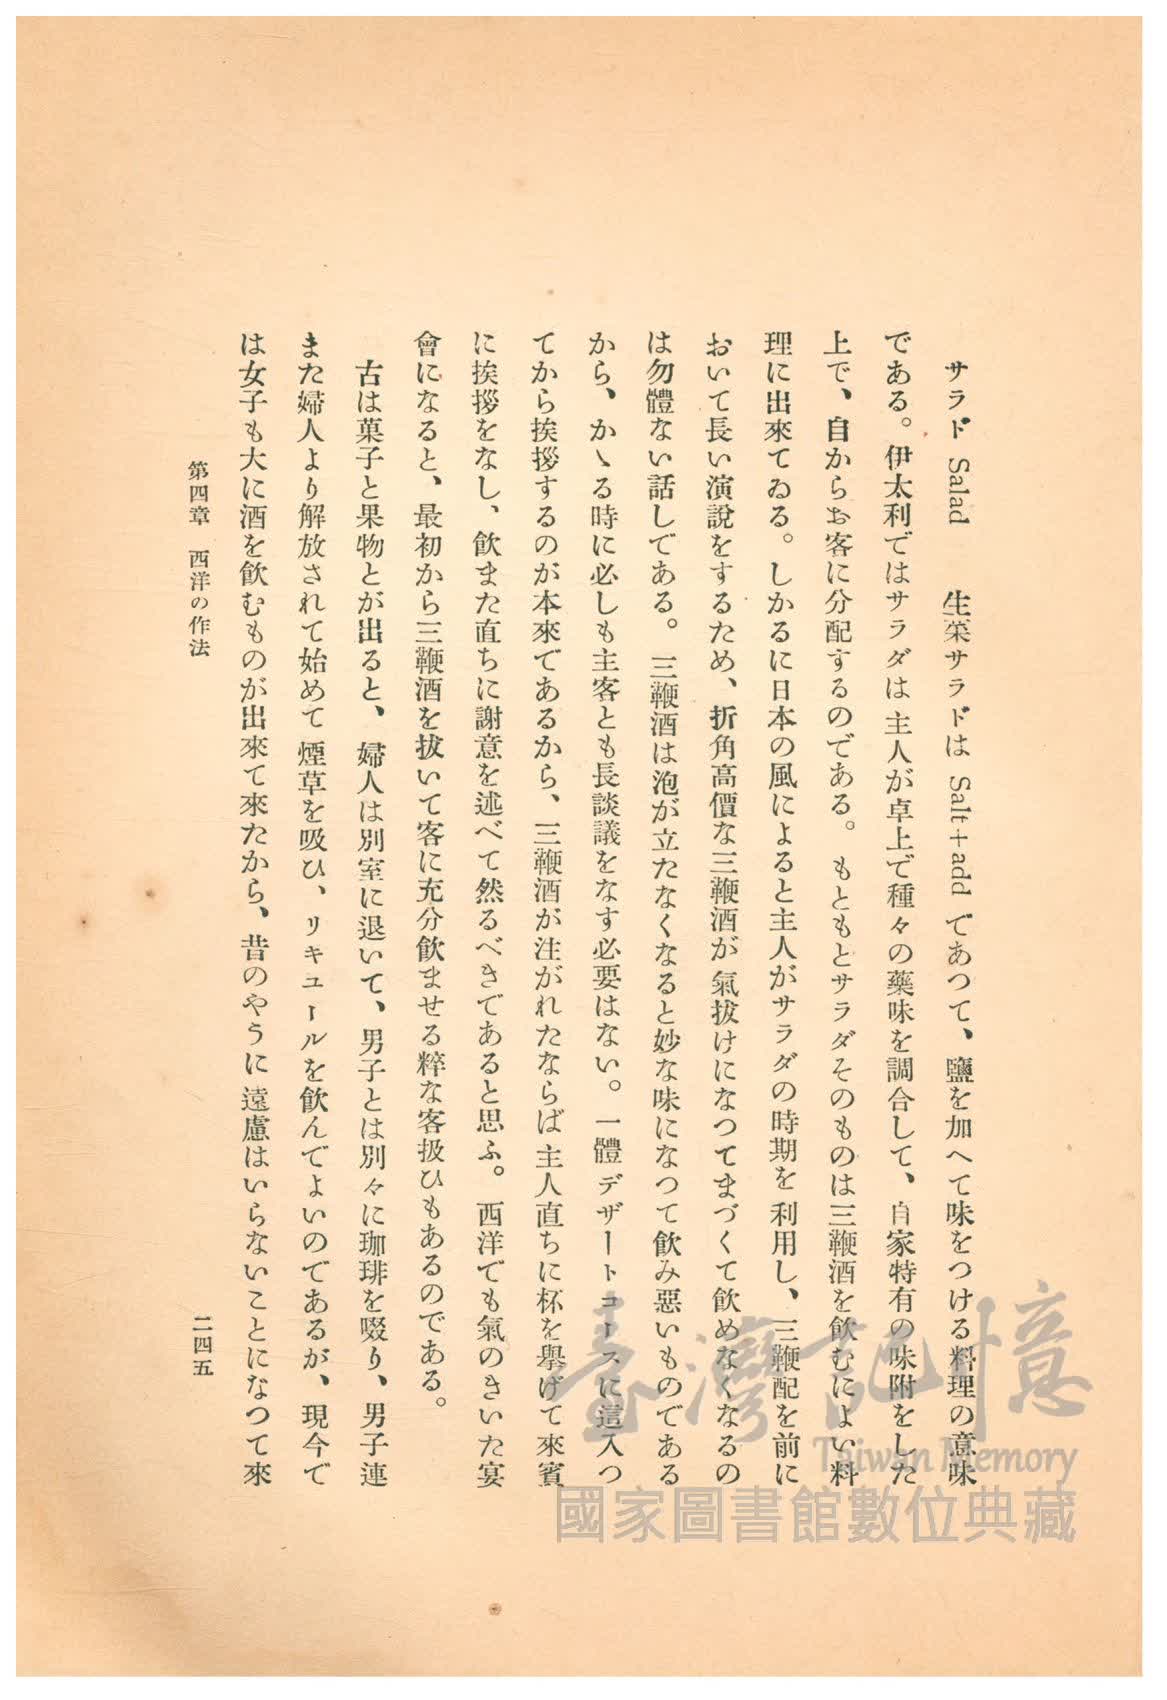 サラド Salad　生菜サラドは Salt＋add であつて、鹽を加へて味をつける料理の意味
である。伊太利ではサラダは主人が卓上で種々の藥味を調合して、自家特有の味附をした
上で、自からお客に分配するのである。もともとサラダそのものは三鞭酒を飲むによい料
理に出來てゐる。しかるに日本の風によると主人がサラダの時期を利用し、三鞭配を前に
おいて長い演説をするため、折角高價な三鞭酒が氣拔けになつてまづくて飲めなくなるの
は勿體ない話しである。三鞭酒は泡が立たなくなると妙な味になつて飲み惡いものである
から、かゝる時に必しも主客とも長談議をなす必要はない。一體デザートコースに這入つ
てから挨拶するのが本來であるから、三鞭酒が注がれたならば主人直ちに杯を擧げて來賓
に挨拶をなし、飲また直ちに謝意を述べて然るべきであると思ふ。西洋でも氣のきいた宴
會になると、最初から三鞭酒を拔いて客に充分飲ませる粹な客扱ひもあるのである。
古は菓子と果物とが出ると、婦人は別室に退いて、男子とは別々に珈琲を啜り、男子連
また婦人より解放されて始めて煙草を吸ひ、リキユールを飲んでよいのであるが、現今で
は女子も大に酒を飲むものが出來て來たから、昔のやうに遠慮はいらないことになつて來
第四章　西洋の作法
二四五
臺灣記憶
Taiwan Memory
國家圖書館數位典藏